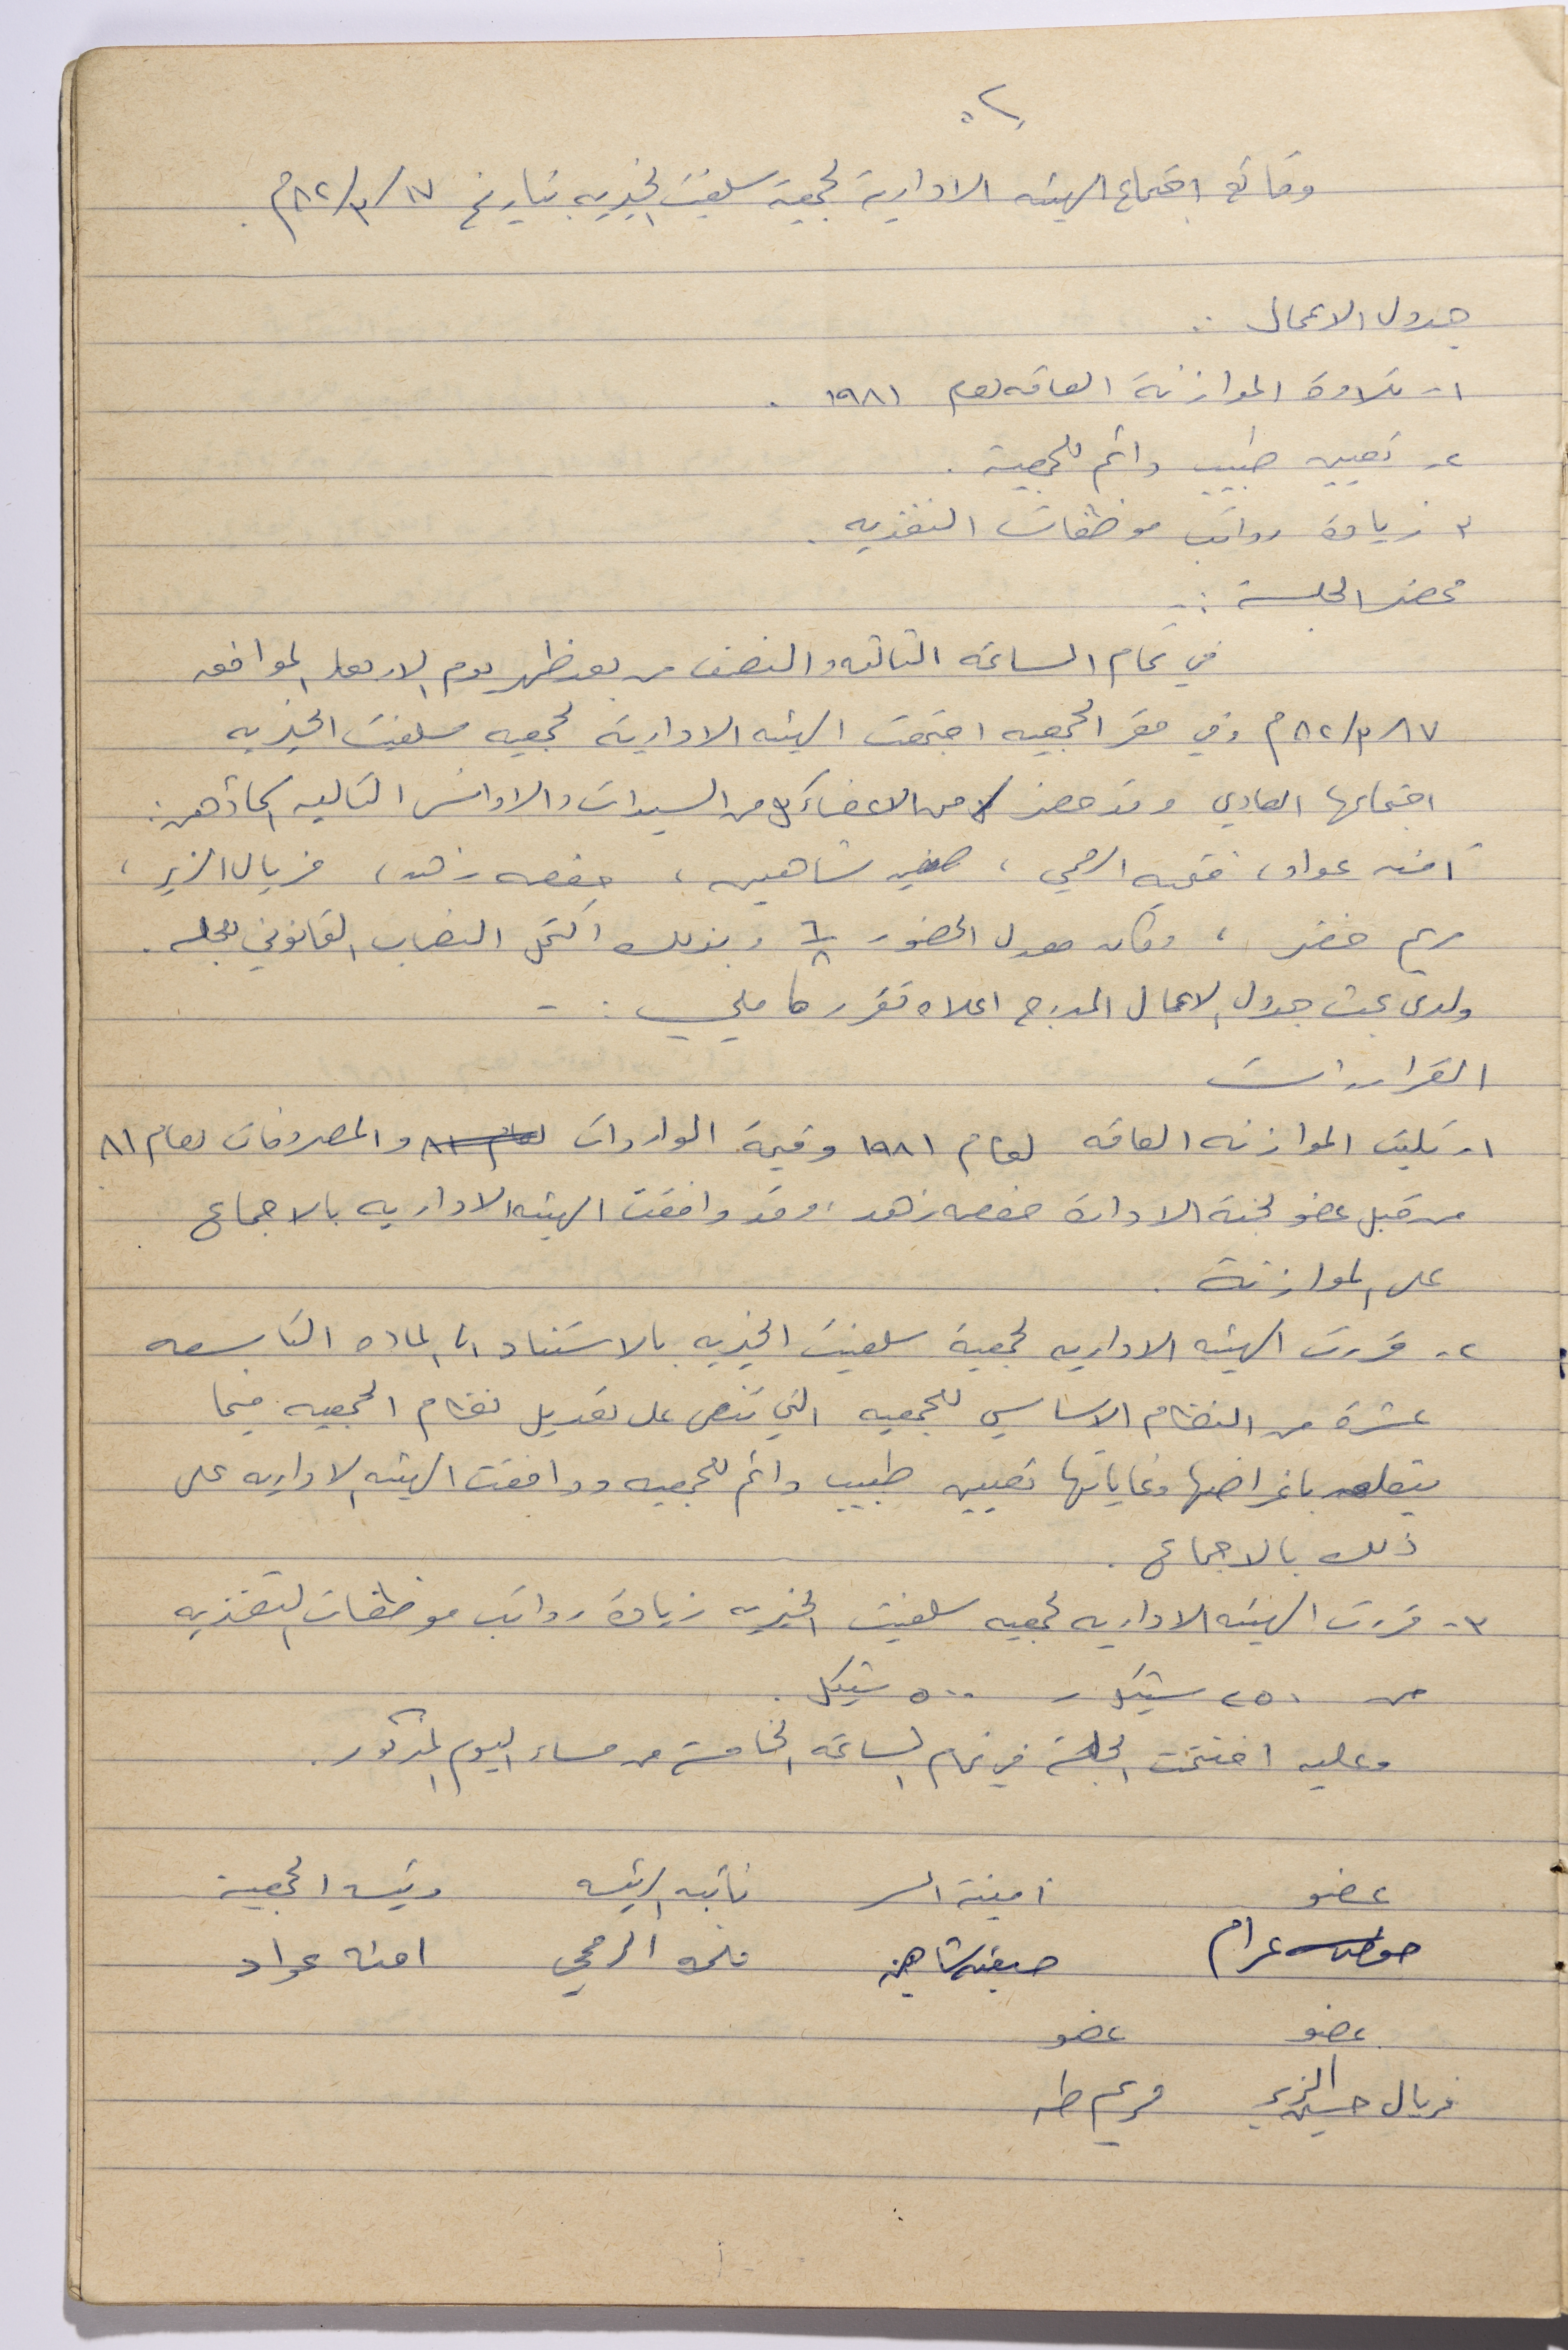 وقائع اجتماع الهيئه الادارية لجمعية سلفيت الخيريه بتاريخ ١٧/٣/٨٢م.
جدول الاعمال :
١- تلاوة الموازنة العامه لعام ١٩٨١ .
٢- تعيين طبيب دائم للجمعية .
٣- زيادة رواتب موظفات التغذيه .
محضر الجلسة :-
في تمام الساعه الثالثه والنصف من بعد ظهر يوم الاربعاء الموافق
١٧/٣/٨٢م وفي مقر الجمعيه اجتمعت الهيئه الادارية لجمعيه سلفيت الخيريه
اجتماعها العادي وقد حضر من الاعضاء كل من السيدات والاوانس التاليه اسماؤهن:
آمنه عواد، فتحيه الرمحي ، صفيه شاهين ، حفصه زهد ، فريال الزير ،
مريم خضر ، وكان معدل الحضور ٦/٨ وبذلك اكتمل النصاب القانوني للجلسه .
ولدى بحث جدول الاعمال المدرج اعلاه تقرر ما يلي :-
القرارات
١- تليت الموازنه العامه لعام ١٩٨١ وقيمة الواردات لعام ٨١ والمصروفات لعام ٨١
من قبل عضو لجنة الادارة حفصه زهد ، وقد وافقت الهيئه الاداريه بالاجماع
على الموازنة .
٢- قررت الهيئه الاداريه لجمعية سلفيت الخيريه بالاستناد الى الماده التاسعه
عشرة من النظام الاساسي للجمعيه التي تنص على تعديل نظام الجمعيه فيما
يتعلق باغراضها وغاياتها تعيين طبيب دائم للجمعيه ووافقت الهيئه الاداريه على
ذلك بالاجماع .
٣- قررت الهيئه الاداريه لجمعيه سلفيت الخيريه زيادة رواتب موظفات التغذيه
من ٢٥٠ شيكل - ٥٠٠ شيكل .
وعليه اختتمت الجلسة في تمام الساعه الخامسة من مساء اليوم المذكور .
عضو امينة السر نائبه الرئيسه رئيسه الجمعية
عزام صفيه شاهين الرمحي امنه عواد
عضو عضو
فريال حسين الزير مريم طه